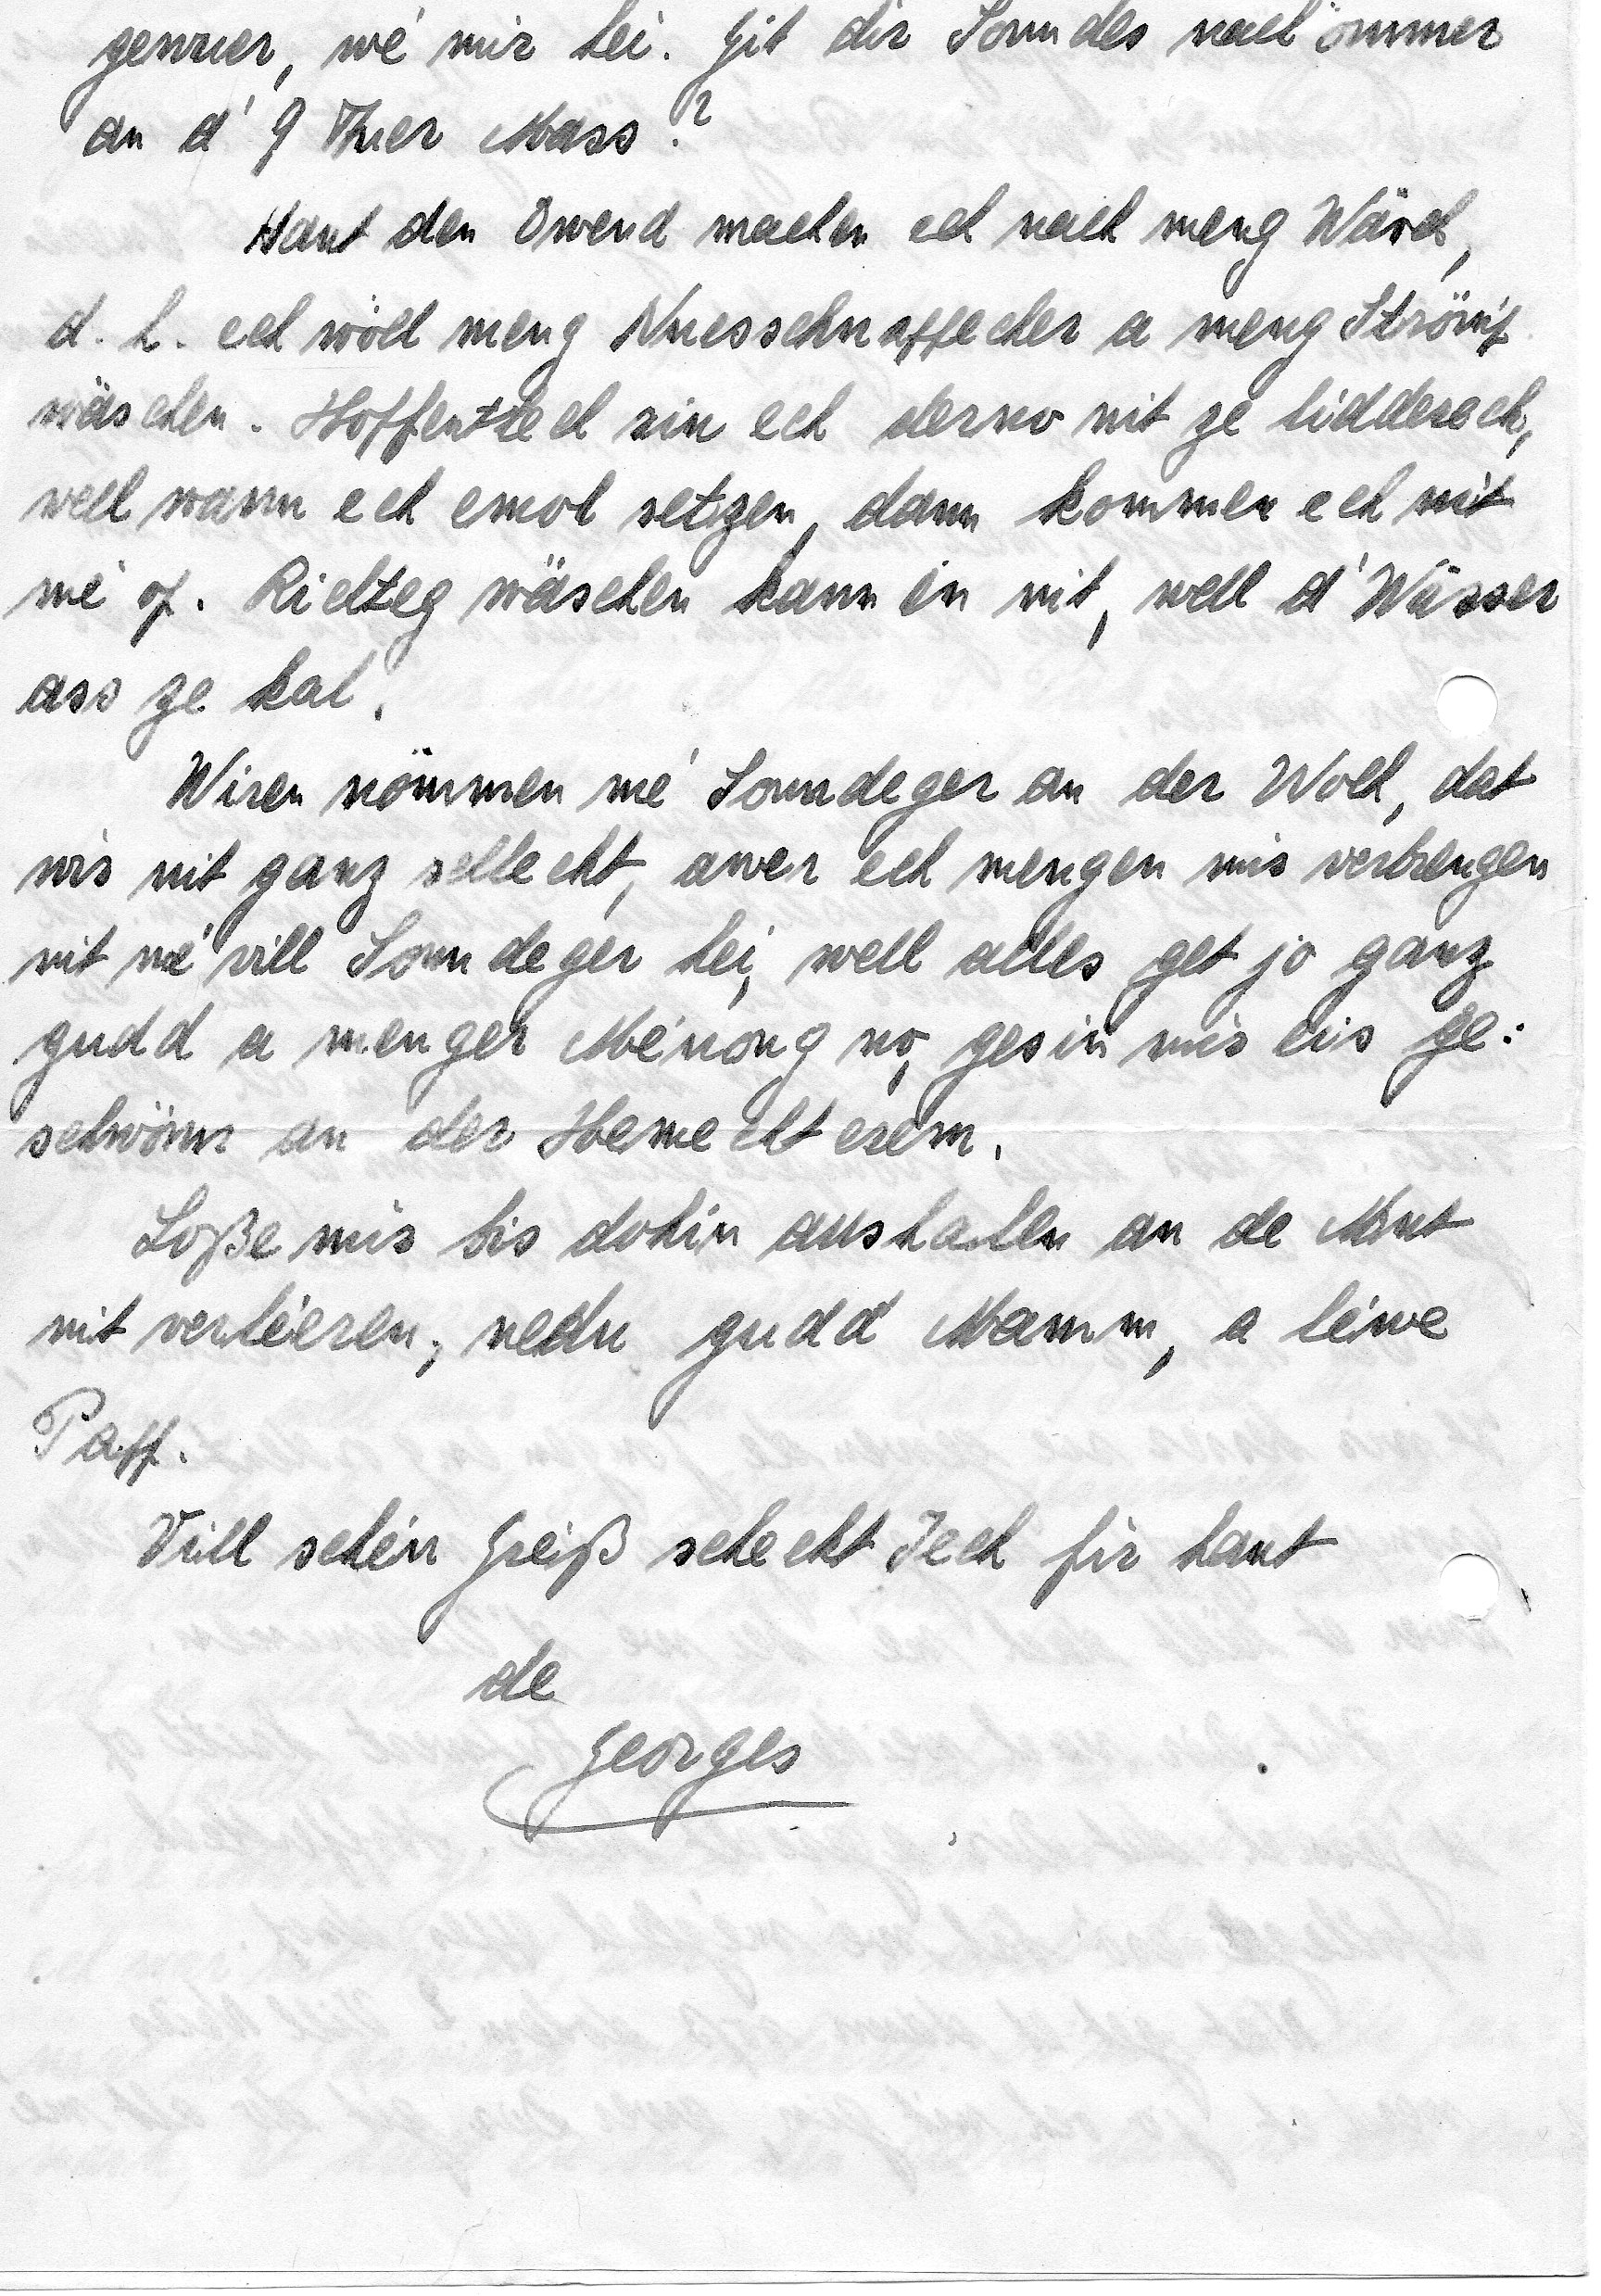 genuer, wé mir hei. Git dir Sonndes nach ömmer
an d' 9 Auer Mass?
Haut den Owend machen ech nach meng Wäsch,
d. h. ech wöll meng Nuesschnappecher a meng Strömp
wäschen. Hoffentlech sin ech derno nit ze lidderech,
well wann ech emol setzen, dann kommen ech nit
mé op. Richteg wäschen kann én nit, well d'Wasser
ass ze kal.
Wiren nömmen mé Sonndeger an der Woch, dat
wir nit ganz schlecht, awer ech mengen mir verbrengen
nit mé vill Sonndeger hei, well alles get jo ganz
gudd a menger Ménong no, gesin mir eis ge:
schwönn an der Hemecht erem.
Loße mir bis dohin aushalen an de Mut
nit verléieren, nedu gudd Mamm, a léiwe
Papp.
Vill schéin Greiß schecht Iech fir haut
de
Georges